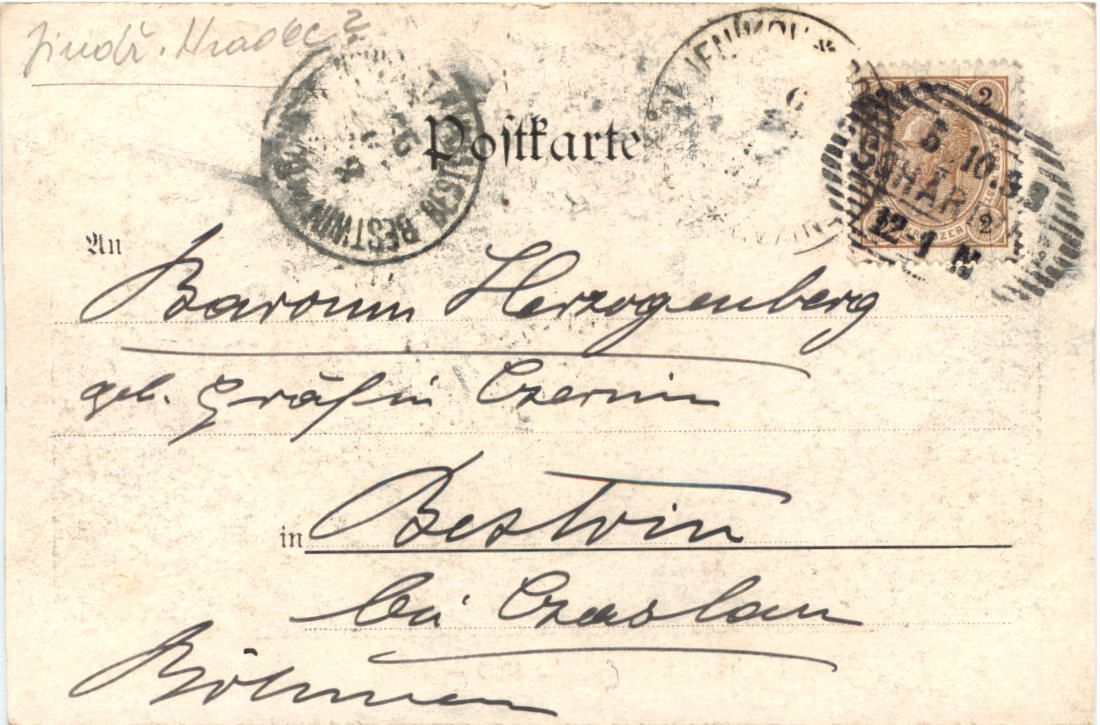 Jindř. Hradec ?
Postkarte
BESTWIN
2 2
5 10
12-1 N
2 KREUZER 2
An
Baronin Herzogenberg
geb. Gräfin Czernin
in Bestvin
bei Czaslau
Böhmen